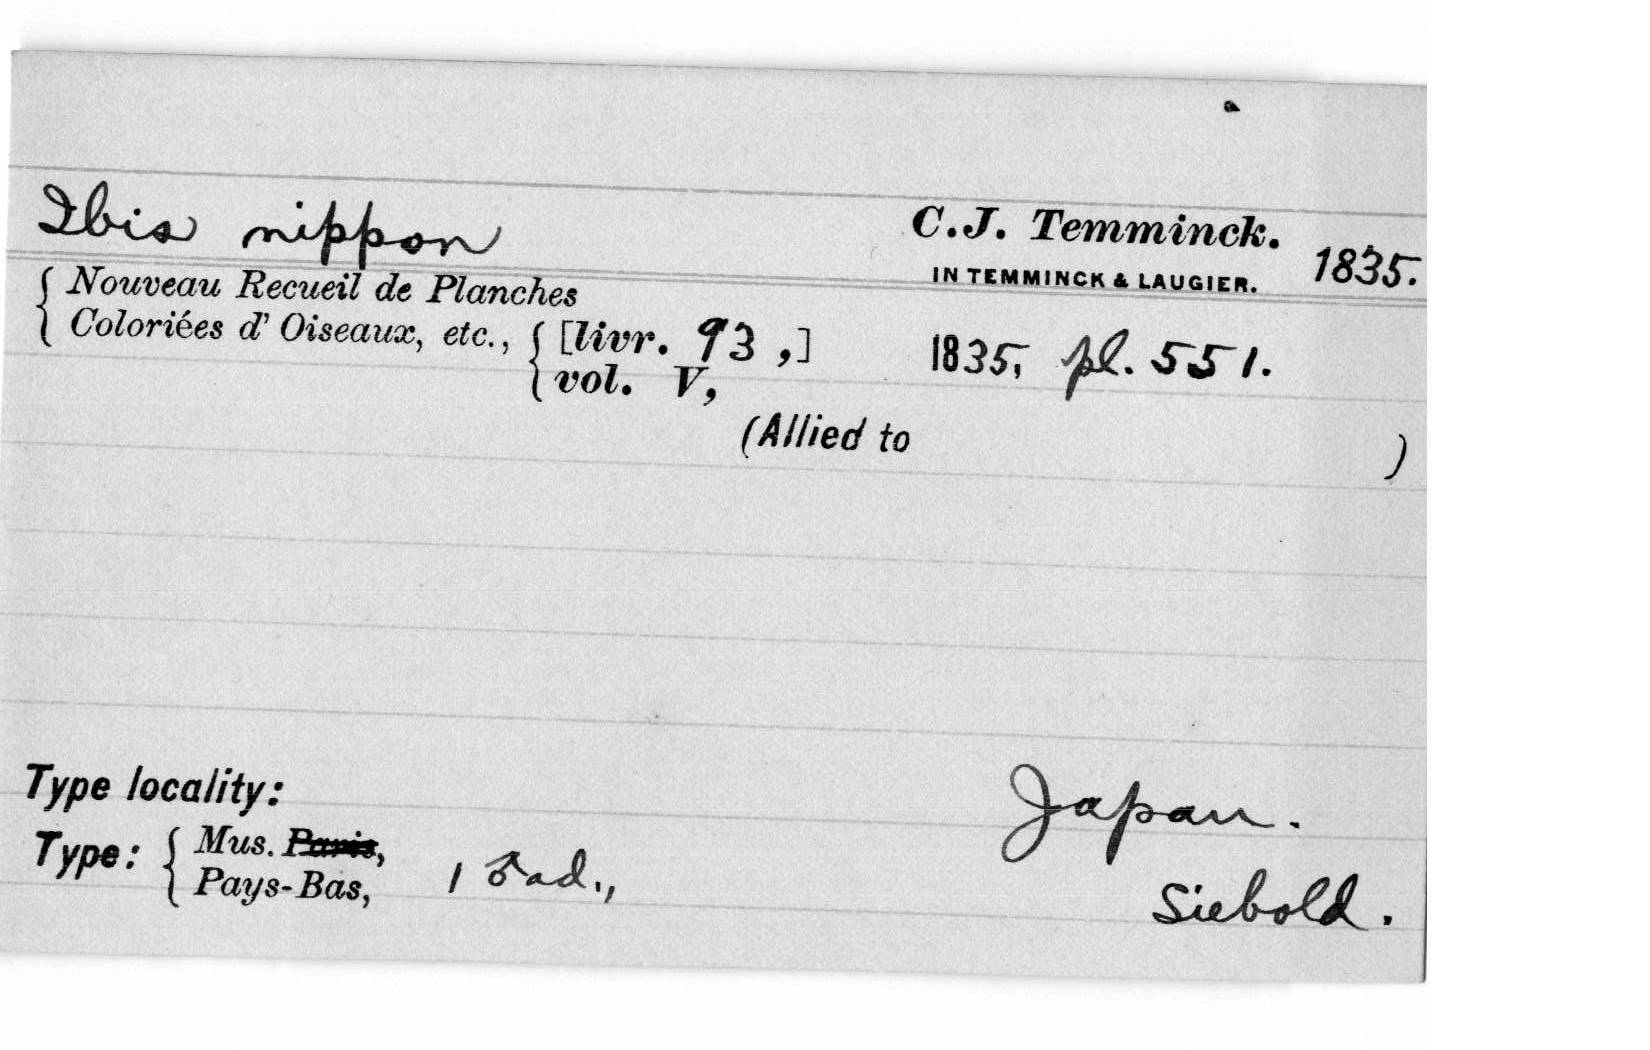 Ibis nippon C.J. Temminck.
IN TEMMINCK & LAUGIER. 1835.
{ Nouveau Recueil de Planches
{ Coloriées d' Oiseaux, etc., { [livr. 93 ,] 1835, pl. 551.
{ vol. V,
(Allied to )
Type locality: Japan.
Type: { Mus. Paris,
{ Pays-Bas, 1 ♂ ad., Siebold.